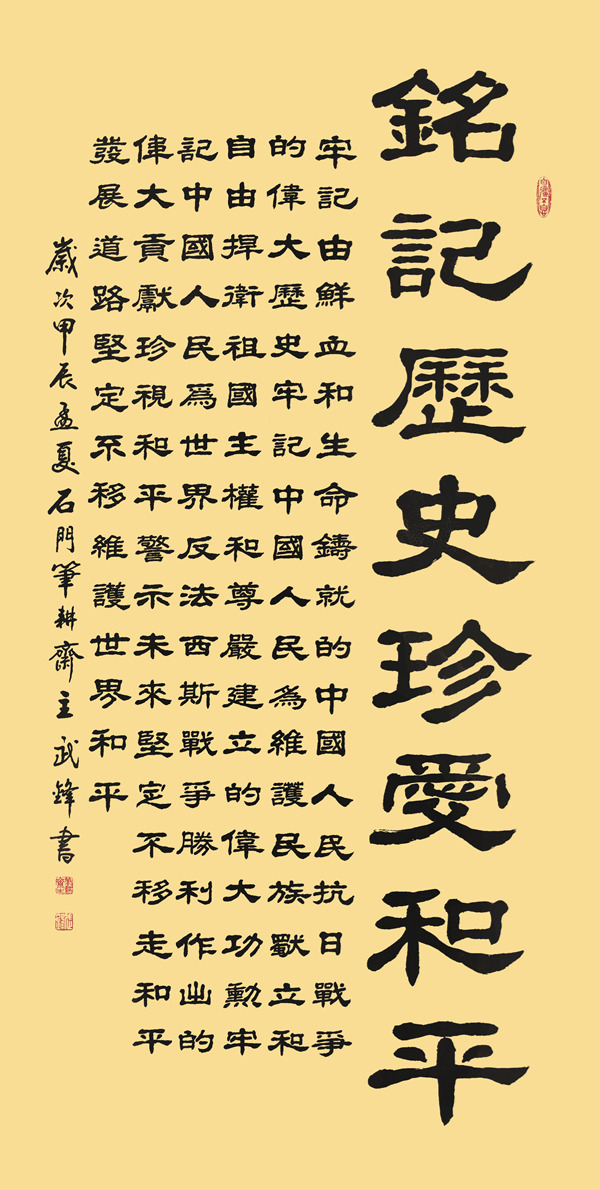 銘記歷史珍愛和平
牢記由鮮血和生命鑄就的中國人民抗日戰爭
的偉大歷史牢記中國人民為維護民族獨立和
自由捍衛祖國主權和尊嚴建立的偉大功勳牢
記中國人民爲世界反法西斯戰爭勝利作出的
偉大貢獻珍視和平警示未來堅定不移走和平
發展道路堅定不移維護世界和平
歲次甲辰孟夏石門筆耕齋主武鋒書